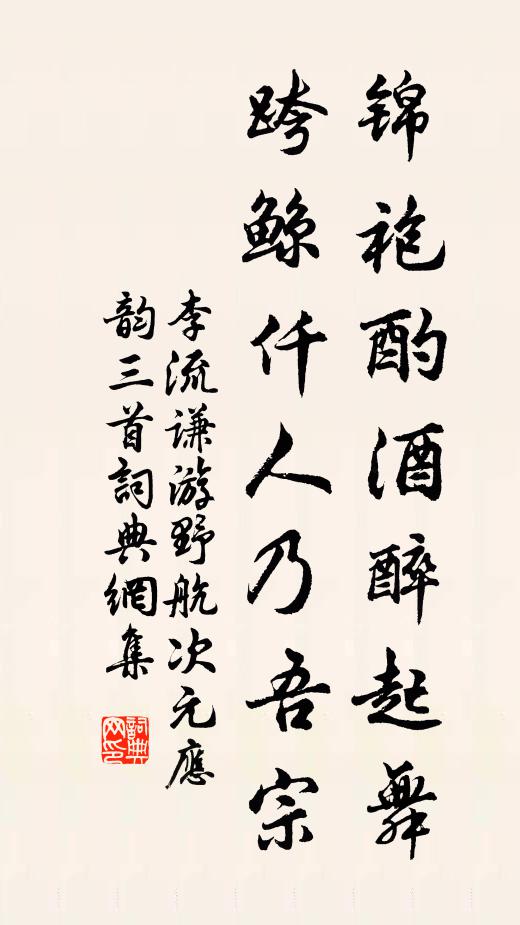 锦袍酌酒醉起舞
跨鲸仟人乃吾宗
李流谦游野航次元應
韵三首詞典網集
詞典
网印